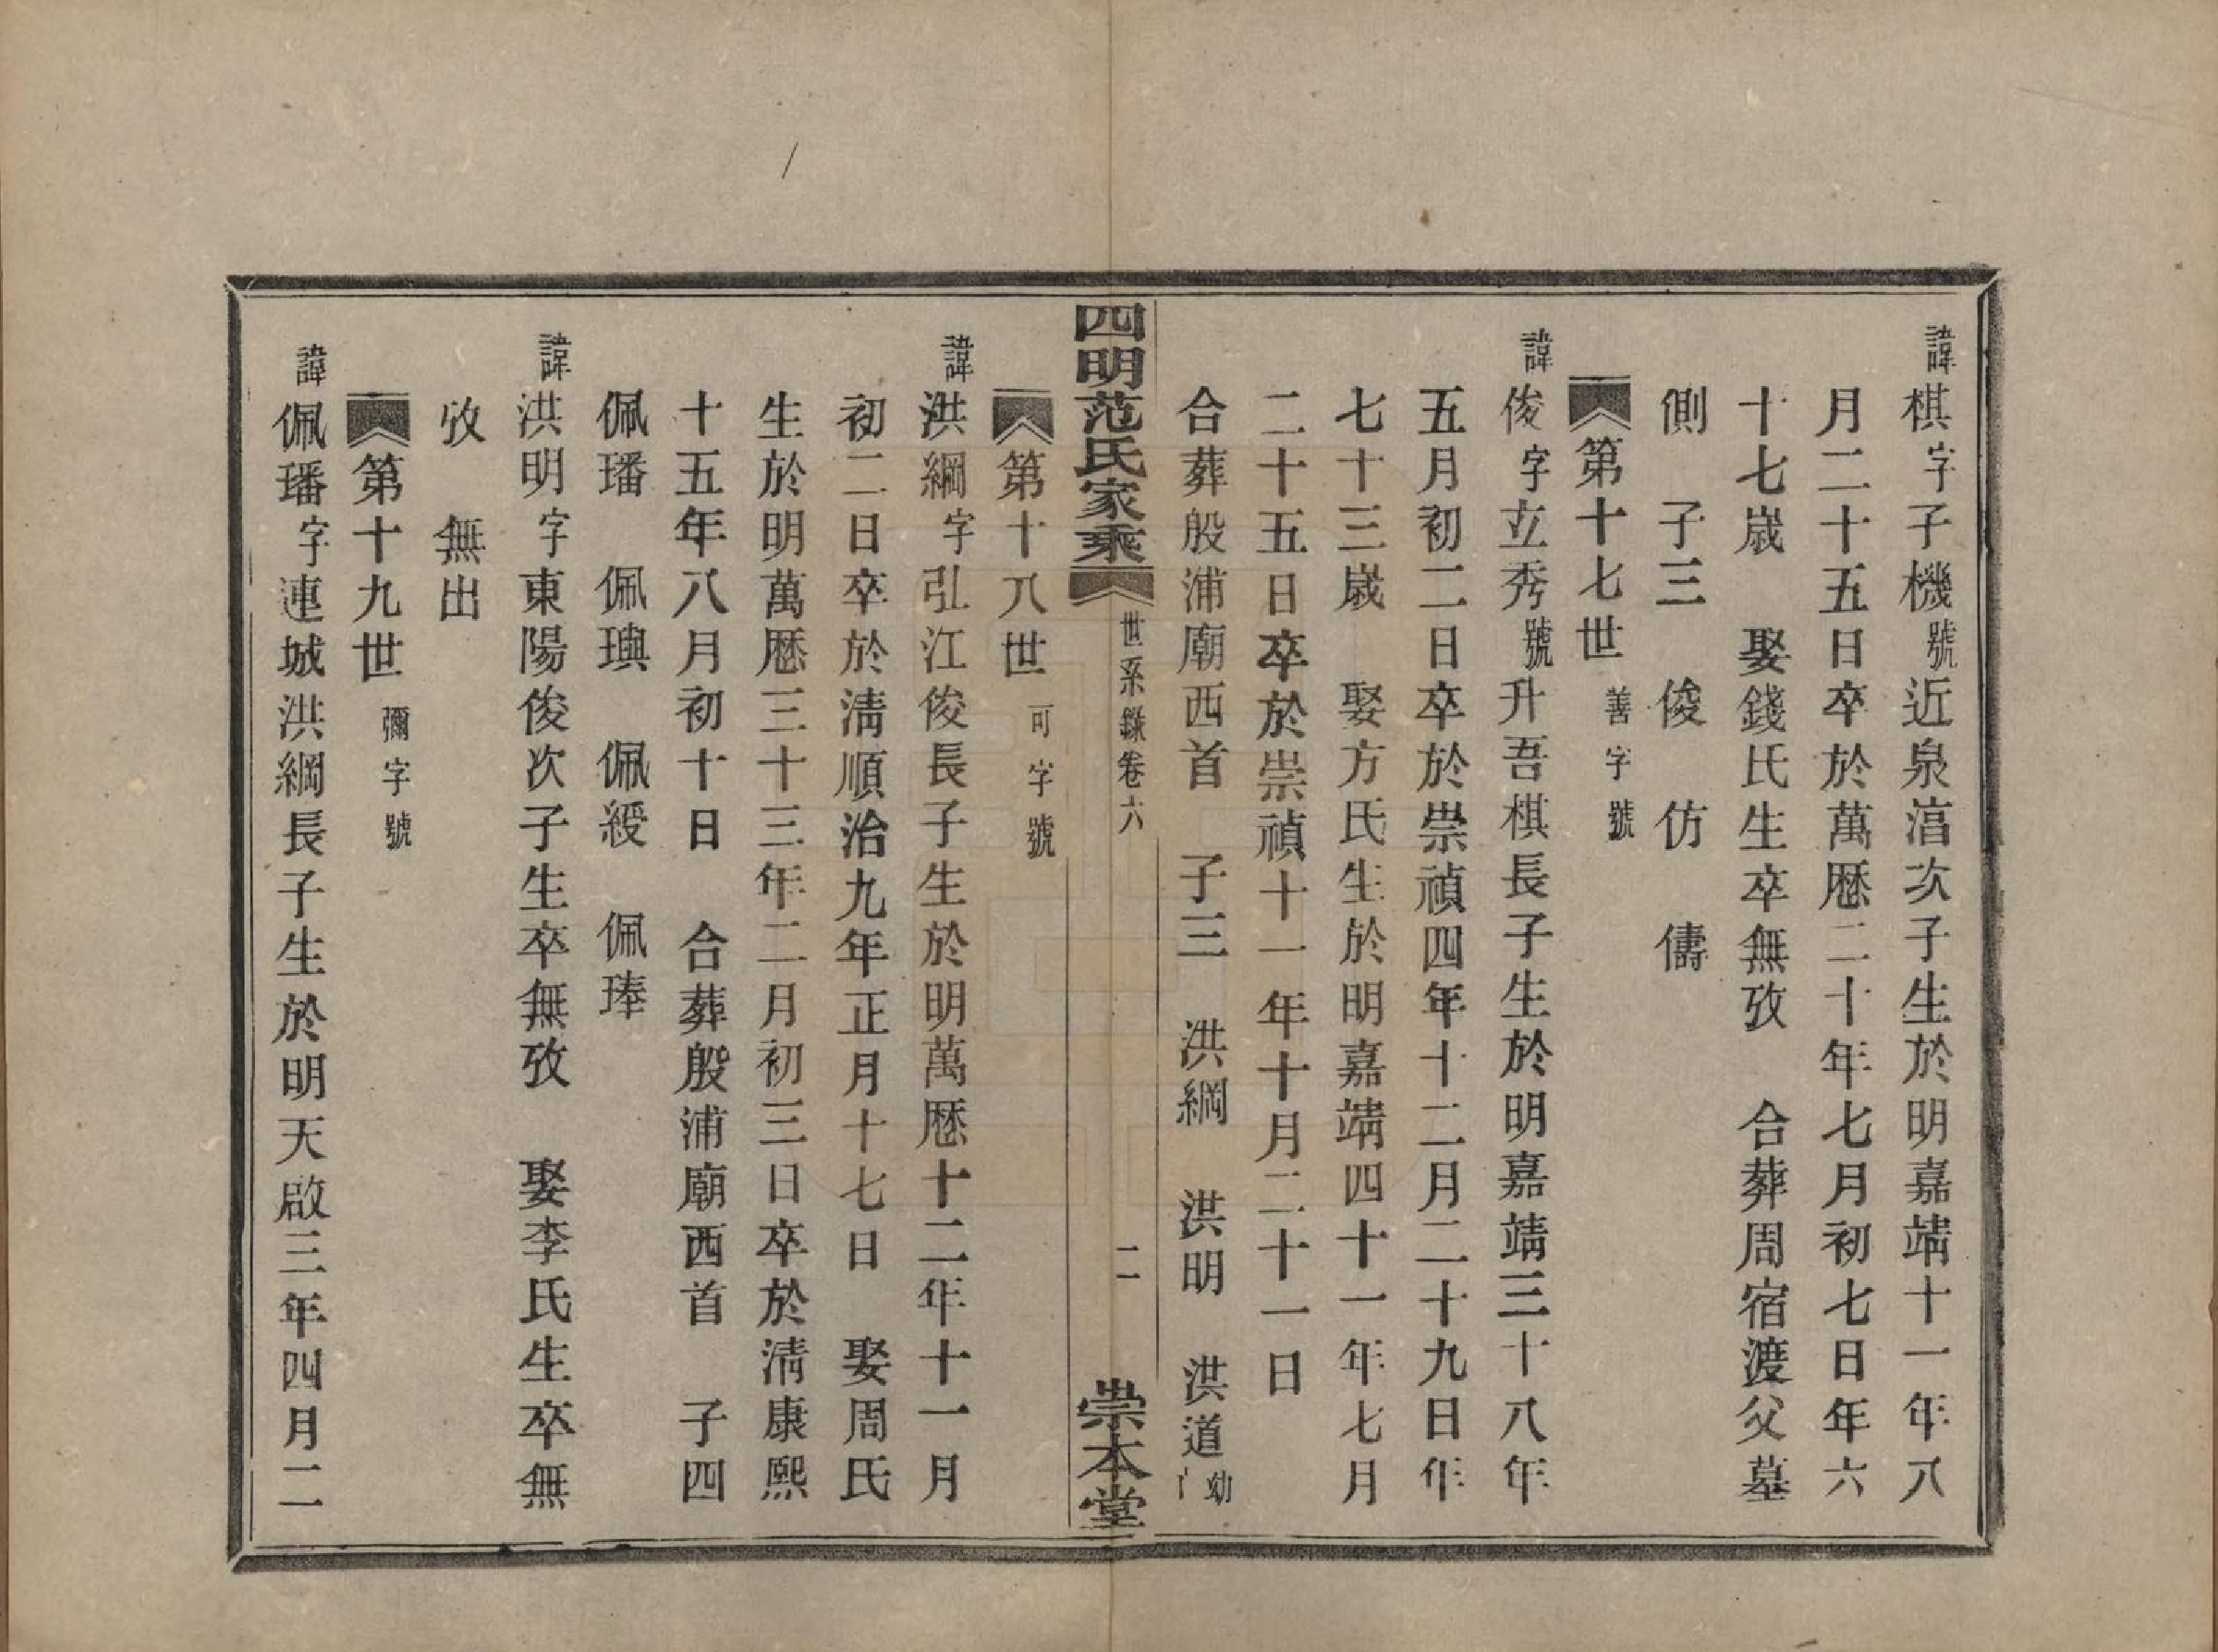 諱棋字子機號近泉㵍次子生於明嘉靖十一年八
月二十五日卒於萬厯二十年七月初七日年六
十七歳　娶錢氏生卒無攷　合葬周宿渡父墓
側　子三　俊　仿　儔
第十七世善字號
諱俊字立秀號升吾棋長子生於明嘉靖三十八年
五月初二日卒於崇禎四年十二月二十九日年
七十三歳　娶方氏生於明嘉靖四十一年七月
二十五日卒於崇禎十一年十月二十一日
合葬殷浦廟西首　子三　洪綱　洪明　洪道幼亡
四明范氏家乘　世系錄卷六　二　崇本堂
第十八世可字號
諱洪綱字弘江俊長子生於明萬厯十二年十一月
初二日卒於淸順治九年正月十七日　娶周氏
生於明萬厯三十三年二月初三日卒於淸康熙
十五年八月初十日　合葬殷浦廟西首　子四
佩璠　佩璵　佩綬　佩琫
諱洪明字東陽俊次子生卒無攷　娶李氏生卒無
攷　無出
第十九世彌字號
諱佩璠字連城洪綱長子生於明天啟三年四月二